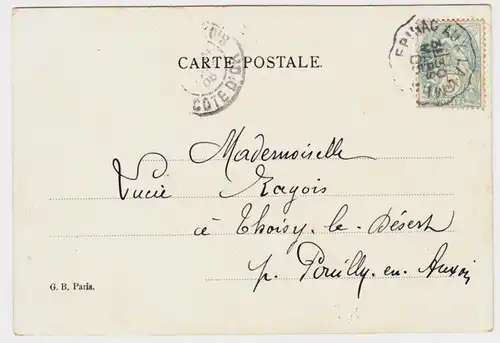 CARTE POSTALE.
CÔTE D'OR
EPINAC
Mademoiselle
Lucie Ragois
à Thoisy-le-Désert
p. Pouilly-en-Auxois
G. B. Paris.